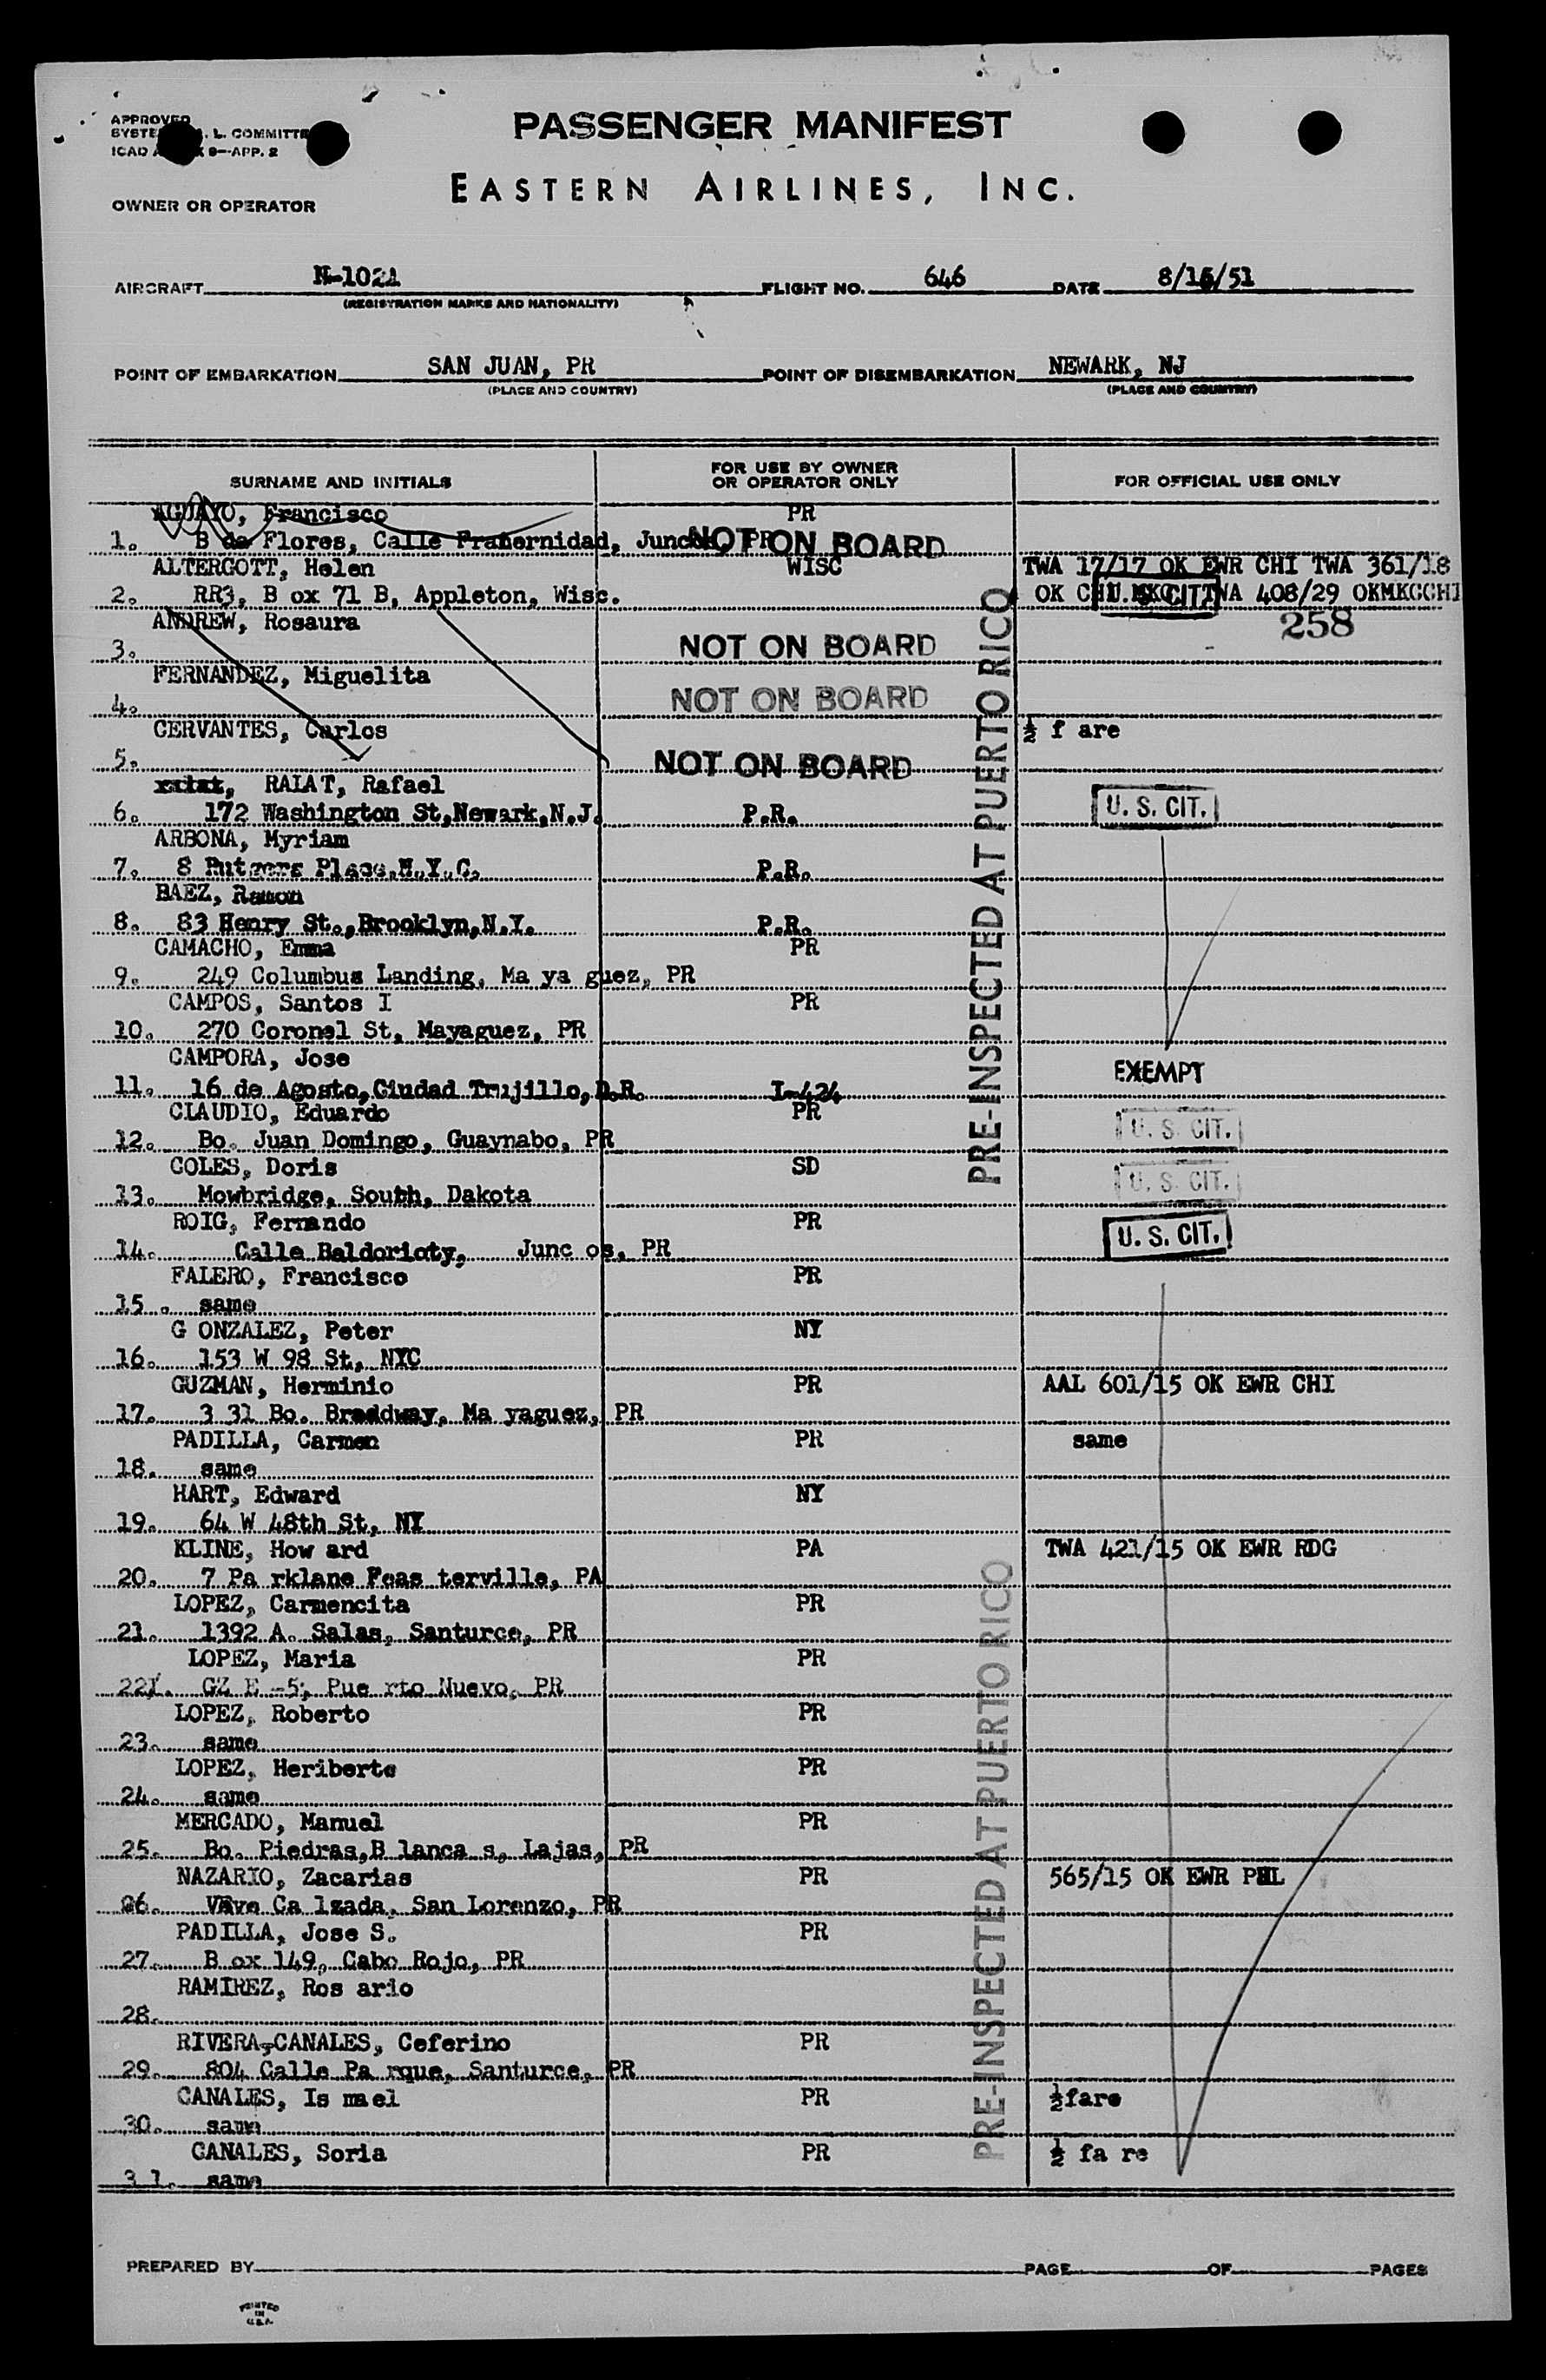 APPROVED
L. COMMITTE
ICAO 9—APP. 2
PASSENGER MANIFEST
EASTERN AIRLINES, INC.
OWNER OR OPERATOR
AIRCRAFT N-102A FLIGHT NO. 646 DATE 8/15/51
(REGISTRATION MARKS AND NATIONALITY)
POINT OF EMBARKATION SAN JUAN, PR POINT OF DISEMBARKATION NEWARK, NJ
(PLACE AND COUNTRY) (PLACE AND COUNTRY)
SURNAME AND INITIALS FOR USE BY OWNER OR OPERATOR ONLY FOR OFFICIAL USE ONLY
AGUAYO, Francisco PR
1. B da Flores, Calle Fraternidad, Juncos, PR NOT ON BOARD
ALTERGOTT, Helen WISC TWA 17/17 OK EWR CHI TWA 361/18
2. RR3, B ox 71 B, Appleton, Wisc. OK CHI MKC TWA 408/29 OKMKCCHI
U. S. CIT.
ANDREW, Rosaura 258
3. NOT ON BOARD
FERNANDEZ, Miguelita
4. NOT ON BOARD
CERVANTES, Carlos ½ f are
5. NOT ON BOARD
RAIAT, Rafael
6. 172 Washington St,Newark,N.J. P.R. U. S. CIT.
ARBONA, Myriam
7. 8 Rutgers Place,N.Y.C. P.R.
BAEZ, Ramon
8. 83 Henry St.,Brooklyn,N.Y. P.R.
CAMACHO, Emma PR
9. 249 Columbus Landing, Ma ya guez, PR
CAMPOS, Santos I PR
10. 270 Coronel St, Mayaguez, PR
CAMPORA, Jose EXEMPT
11. 16 de Agosto,Ciudad Trujillo,D.R. I-424
CLAUDIO, Eduardo PR
12. Bo. Juan Domingo, Guaynabo, PR U. S. CIT.
COLES, Doris SD
13. Mowbridge, South, Dakota U. S. CIT.
ROIG, Fernando PR
14. Calle Baldorioty, Junc os, PR U. S. CIT.
FALERO, Francisco PR
15 . same
G ONZALEZ, Peter NY
16. 153 W 98 St, NYC
GUZMAN, Herminio PR AAL 601/15 OK EWR CHI
17. 3 31 Bo. Broddway, Ma yaguez, PR
PADILLA, Carmen PR same
18. same
HART, Edward NY
19. 64 W 48th St, NY
KLINE, How ard PA TWA 421/15 OK EWR RDG
20. 7 Pa rklane Feas terville, PA
LOPEZ, Carmencita PR
21. 1392 A. Salas, Santurce, PR
LOPEZ, Maria PR
22. GZ E -5, Pue rto Nuevo, PR
LOPEZ, Roberto PR
23. same
LOPEZ, Heriberto PR
24. same
MERCADO, Manuel PR
25. Bo. Piedras,B lanca s, Lajas, PR
NAZARIO, Zacarias PR 565/15 OK EWR PHL
26. Ca lzada, San Lorenzo, PR
PADILLA, Jose S. PR
27. B ox 149, Cabo Rojo, PR
RAMIREZ, Ros ario
28.
RIVERA-CANALES, Ceferino PR
29. 804 Calle Pa rque, Santurce, PR
CANALES, Is ma el PR ½fare
30. same
CANALES, Soria PR ½ fa re
3 1. same
PRE-INSPECTED AT PUERTO RICO
PRE-INSPECTED AT PUERTO RICO
PREPARED BY PAGE OF PAGES
PRINTED
IN
U.S.A.